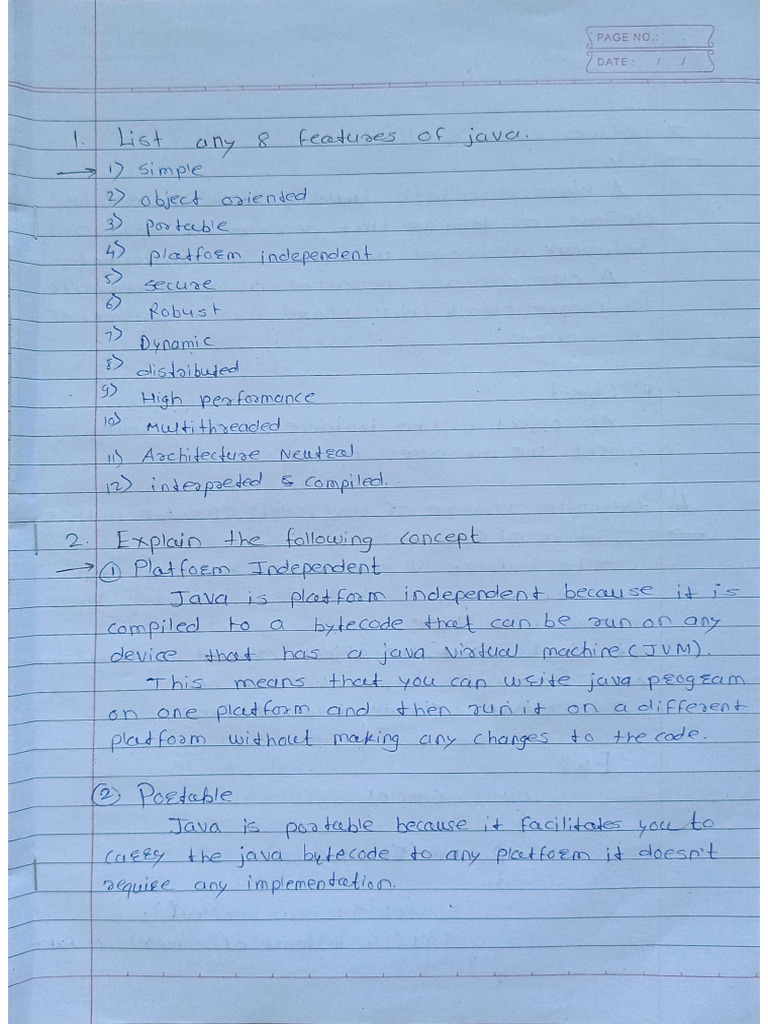 PAGE NO.:
DATE: / /
1. List any 8 features of java.
→ 1) simple
2) object oriented
3) portable
4) platform independent
5) secure
6) Robust
7) Dynamic
8) distributed
9) High performance
10) Multithreaded
11) Architecture Neutral
12) interpreted & compiled.
2. Explain the following concept
→ ① Platform Independent
Java is platform independent because it is
compiled to a bytecode that can be run on any
device that has a java virtual machine (JVM).
This means that you can write java program
on one platform and then run it on a different
platform without making any changes to the code.
② Portable
Java is portable because it facilitates you to
carry the java bytecode to any platform it doesn't
require any implementation.